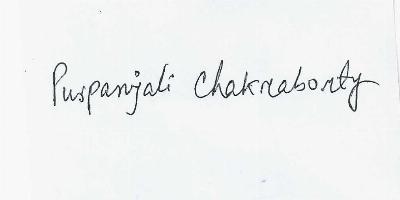 Puspanjali Chakraborty